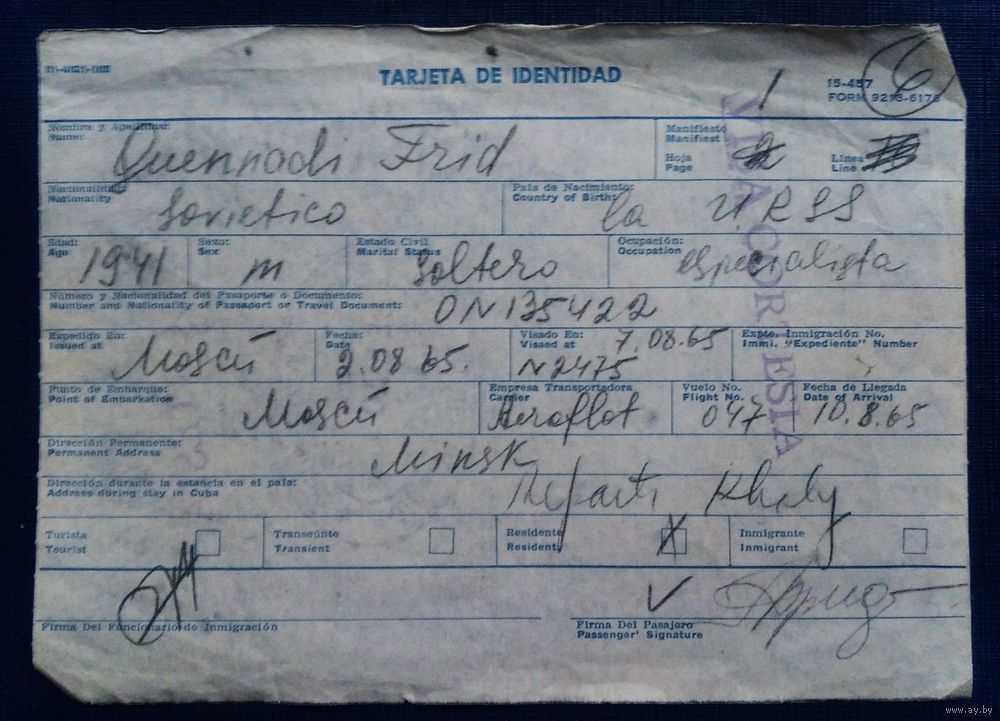 TARJETA DE IDENTIDAD
1
6
15-457
FORM 9213-6176
Nombre y Apellidos:
Name:
Quennadi Frid
Manifiesto
Manifiest
Hoja
Page
Linea
Line
Nacionalidad:
Nationality
Sovietico
País de Nacimiento:
Country of Birth:
la URSS
Edad:
Age
1941
Sexo:
Sex
m
Estado Civil
Marital Status
Soltero
Ocupación:
Occupation
especialista
Número y Nacionalidad del Pasaporte o Documento:
Number and Nationality of Passport or Travel Document:
ON135422
Expedido En:
Issued at
Moscú
Fecha:
Date
2.08.65.
Visado En:
Visaed at
7.08.65
N2475
Expte. Inmigración No.
Immi. "Expediente" Number
Punto de Embarque:
Point of Embarkation
Moscú
Empresa Transportadora
Carrier
Aeroflot
Vuelo No.
Flight No.
047
Fecha de Llegada
Date of Arrival
10.8.65
VISA CORTESIA
Dirección Permanente:
Permanent Address
Minsk
Dirección durante la estancia en el país:
Address during stay in Cuba
Turista
Tourist
Transeúnte
Transient
Residente
Resident
X
Inmigrante
Inmigrant
Firma Del Funcionario de Inmigración
Firma Del Pasajero
Passenger' Signature
www.ay.by